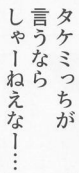 タケミっちが
言うなら
しゃーねえなー…